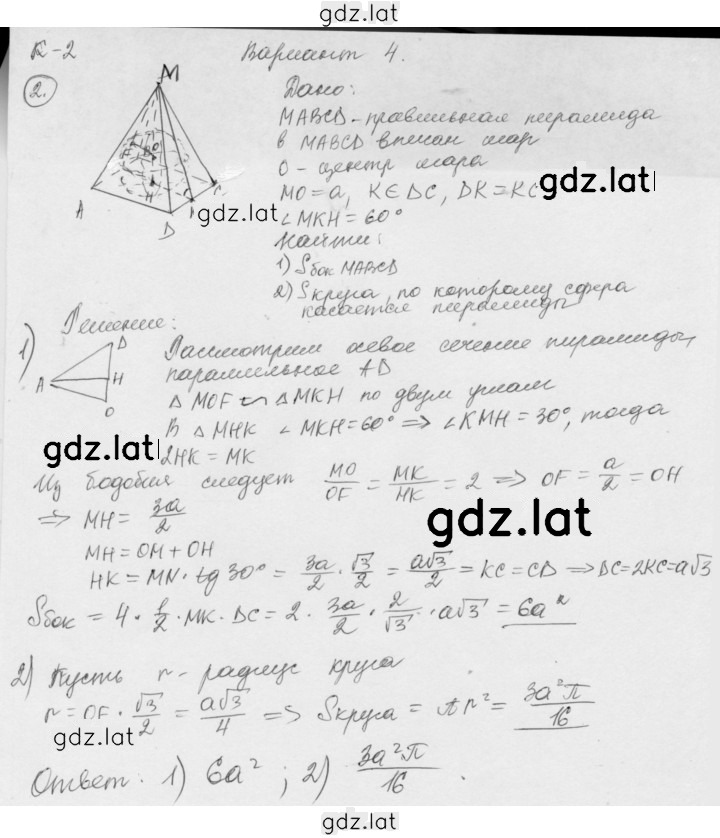 gdz.lat
К-2 Вариант 4.
2.
M
Дано:
MABCD - правильная пирамида
в MABCD вписан шар
O - центр шара
MO = a, K ∈ DC, DK = KC
gdz.lat
∠MKH = 60°
Найти:
1) Sбок MABCD
2) Sкруга, по которому сфера
касается пирамиды
F O
H
A
D
C
gdz.lat
Решение:
1)
A
D
H
O
Рассмотрим осевое сечение пирамиды,
параллельное AD
△ MOF ∽ △ MKH по двум углам
В △ MHK ∠MKH = 60° => ∠KMH = 30°, тогда
2HK = MK
gdz.lat
Из подобия следует MO/OF = MK/HK = 2 => OF = a/2 = OH
=> MH = 3a/2
gdz.lat
MH = OM + OH
HK = MN · tg 30° = 3a/2 · √3/2 = a√3/2 = KC = CD => DC = 2KC = a√3
Sбок = 4 · 1/2 · MK · DC = 2 · 3a/2 · 2/√3 · a√3 = 6a²
2) Пусть r - радиус круга
r = OF · √3/2 = a√3/4 => Sкруга = πr² = 3a²π/16
gdz.lat
Ответ. 1) 6a² ; 2) 3a²π/16.
gdz.lat